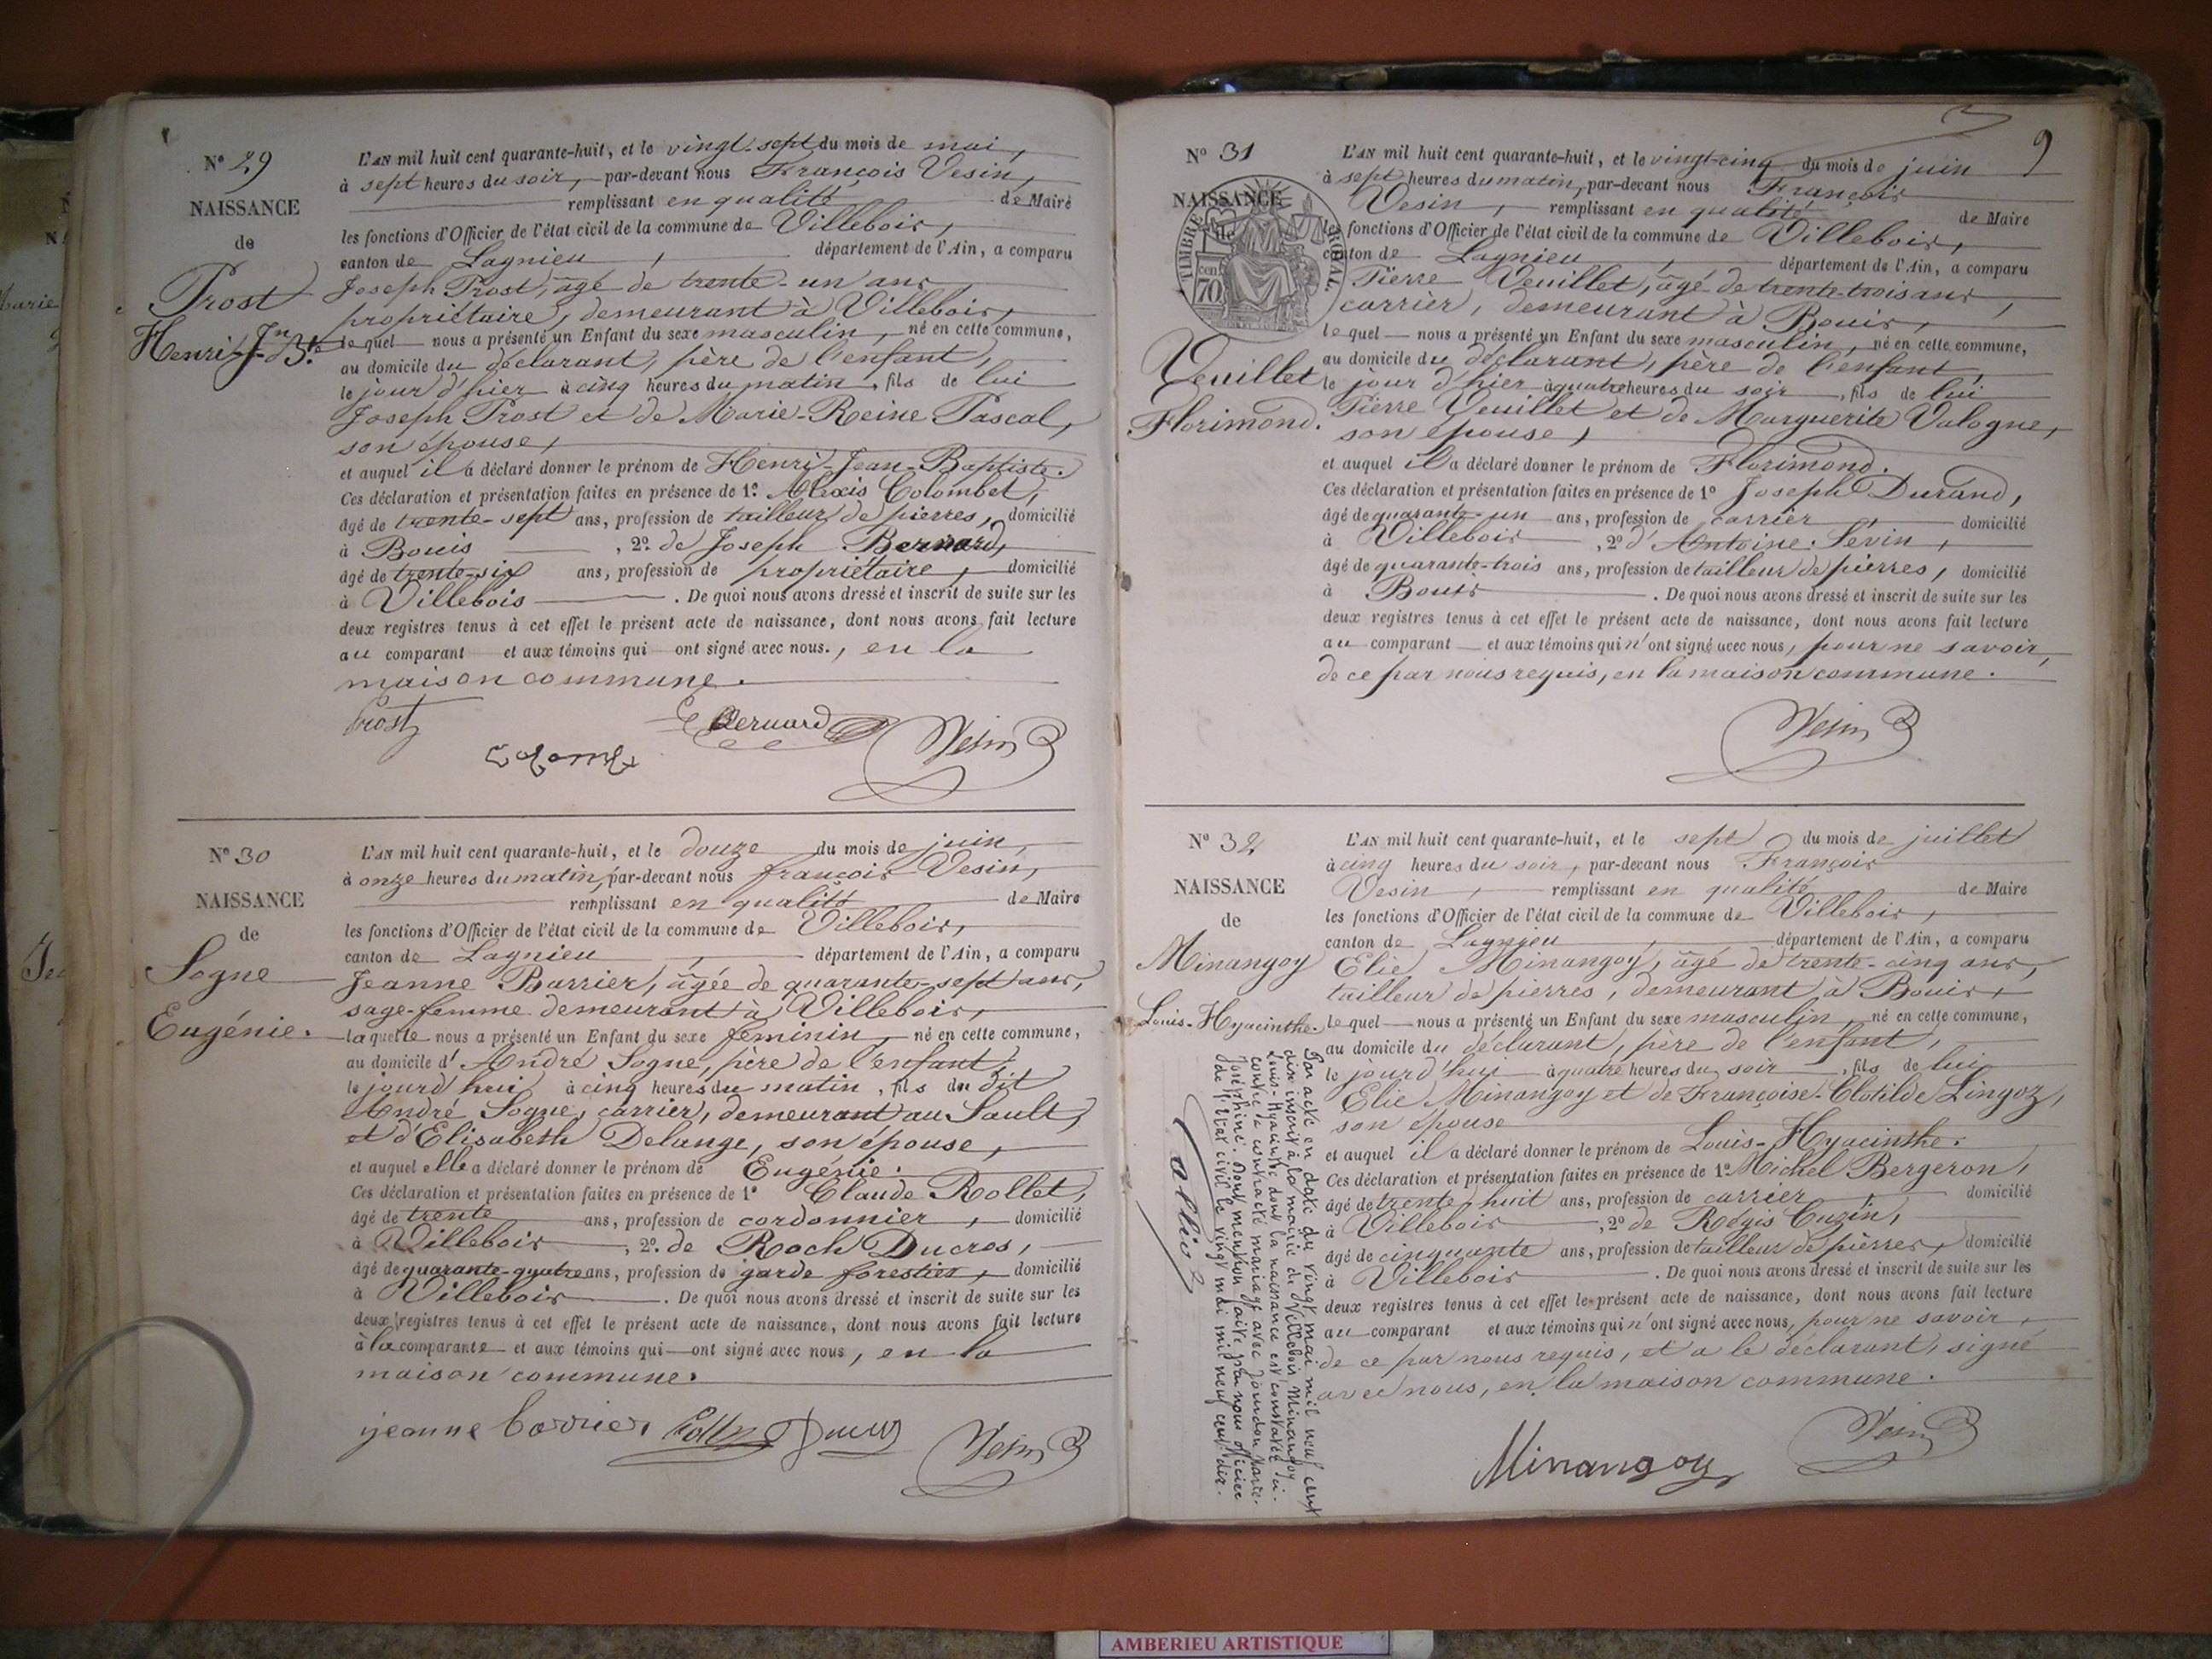 N° 29
NAISSANCE
de
Prost
Henri-Jn-Bte.
L'AN mil huit cent quarante-huit, et le vingt-sept du mois de mai,
à sept heures du soir, par-devant nous François Vesin,
remplissant en qualité de Maire
les fonctions d'Officier de l'état civil de la commune de Villebois,
canton de Lagnieu, département de l'Ain, a comparu
Joseph Prost, âgé de trente-un ans,
propriétaire, demeurant à Villebois,
lequel nous a présenté un Enfant du sexe masculin, né en cette commune,
au domicile du déclarant, père de l'enfant,
le jour d'hier à cinq heures du matin, fils de lui
Joseph Prost et de Marie-Reine Pascal,
son épouse,
et auquel il a déclaré donner le prénom de Henri-Jean-Baptiste.
Ces déclaration et présentation faites en présence de 1° Alexis Colombet,
âgé de trente-sept ans, profession de tailleur de pierres, domicilié
à Bouis, 2° de Joseph Bernard,
âgé de trente-six ans, profession de propriétaire, domicilié
à Villebois. De quoi nous avons dressé et inscrit de suite sur les
deux registres tenus à cet effet le présent acte de naissance, dont nous avons fait lecture
au comparant et aux témoins qui ont signé avec nous, en la
maison commune.
Prost
Bernard
Vesin
N° 30
NAISSANCE
de
Sogne
Eugénie.
L'AN mil huit cent quarante-huit, et le douze du mois de juin,
à onze heures du matin, par-devant nous françois Vesin,
remplissant en qualité de Maire
les fonctions d'Officier de l'état civil de la commune de Villebois,
canton de Lagnieu, département de l'Ain, a comparu
Jeanne Barrier, âgée de quarante-sept ans,
sage-femme demeurant à Villebois,
laquelle nous a présenté un Enfant du sexe féminin, né en cette commune,
au domicile d'André Sogne, père de l'enfant,
le jourd'hui à cinq heures du matin, fils du dit
André Sogne, carrier, demeurant au Sault,
et d'Elisabeth Delange, son épouse,
et auquel elle a déclaré donner le prénom de Eugénie.
Ces déclaration et présentation faites en présence de 1° Claude Rollet,
âgé de trente ans, profession de cordonnier, domicilié
à Villebois, 2° de Roch Ducros,
âgé de quarante-quatre ans, profession de garde forestier, domicilié
à Villebois. De quoi nous avons dressé et inscrit de suite sur les
deux registres tenus à cet effet le présent acte de naissance, dont nous avons fait lecture
à la comparante et aux témoins qui ont signé avec nous, en la
maison commune.
jeanne barrier
Vesin
9
N° 31
NAISSANCE
TIMBRE ROYAL
cen
70
Veuillet
Florimond.
L'AN mil huit cent quarante-huit, et le vingt-cinq du mois de juin
à sept heures du matin, par-devant nous François
Vesin, remplissant en qualité de Maire
les fonctions d'Officier de l'état civil de la commune de Villebois,
canton de Lagnieu, département de l'Ain, a comparu
Pierre Veuillet, âgé de trente-trois ans,
carrier, demeurant à Bouis,
lequel nous a présenté un Enfant du sexe masculin, né en cette commune,
au domicile du déclarant, père de l'enfant,
le jour d'hier à quatre heures du soir, fils de lui
Pierre Veuillet et de Marguerite Valogne,
son épouse,
et auquel il a déclaré donner le prénom de Florimond.
Ces déclaration et présentation faites en présence de 1° Joseph Durand,
âgé de quarante-un ans, profession de carrier, domicilié
à Villebois, 2° d'Antoine Sevin,
âgé de quarante-trois ans, profession de tailleur de pierres, domicilié
à Bouis. De quoi nous avons dressé et inscrit de suite sur les
deux registres tenus à cet effet le présent acte de naissance, dont nous avons fait lecture
au comparant et aux témoins qui n'ont signé avec nous, pour ne savoir,
de ce par nous requis, en la maison commune.
Vesin
N° 32
NAISSANCE
de
Minangoy
Louis-Hyacinthe.
L'AN mil huit cent quarante-huit, et le sept du mois de juillet
à cinq heures du soir, par-devant nous François
Vesin, remplissant en qualité de Maire
les fonctions d'Officier de l'état civil de la commune de Villebois,
canton de Lagnieu, département de l'Ain, a comparu
Elie Minangoy, âgé de trente-cinq ans,
tailleur de pierres, demeurant à Bouis,
lequel nous a présenté un Enfant du sexe masculin, né en cette commune,
au domicile du déclarant, père de l'enfant,
le jourd'hui à quatre heures du soir, fils de lui
Elie Minangoy et de Françoise-Clotilde Lingoz,
son épouse
et auquel il a déclaré donner le prénom de Louis-Hyacinthe.
Ces déclaration et présentation faites en présence de 1° Michel Bergeron,
âgé de trente-huit ans, profession de carrier domicilié
à Villebois, 2° de Régis Cuzin,
âgé de cinquante ans, profession de tailleur de pierres, domicilié
à Villebois. De quoi nous avons dressé et inscrit de suite sur les
deux registres tenus à cet effet le présent acte de naissance, dont nous avons fait lecture
au comparant et aux témoins qui n'ont signé avec nous, pour ne savoir,
de ce par nous requis, et a le déclarant, signé
avec nous, en la maison commune.
Minangoy
Vesin
Par acte en date du vingt mai mil neuf cent
dix inscrit à la mairie de Villebois Minangoy
Louis-Hyacinthe dont la naissance est constatée ci-
contre a contracté mariage avec Jourdon Marie-
Joséphine. Dont mention faite par nous officier
de l'état civil le vingt mai mil neuf cent dix.
AMBERIEU ARTISTIQUE